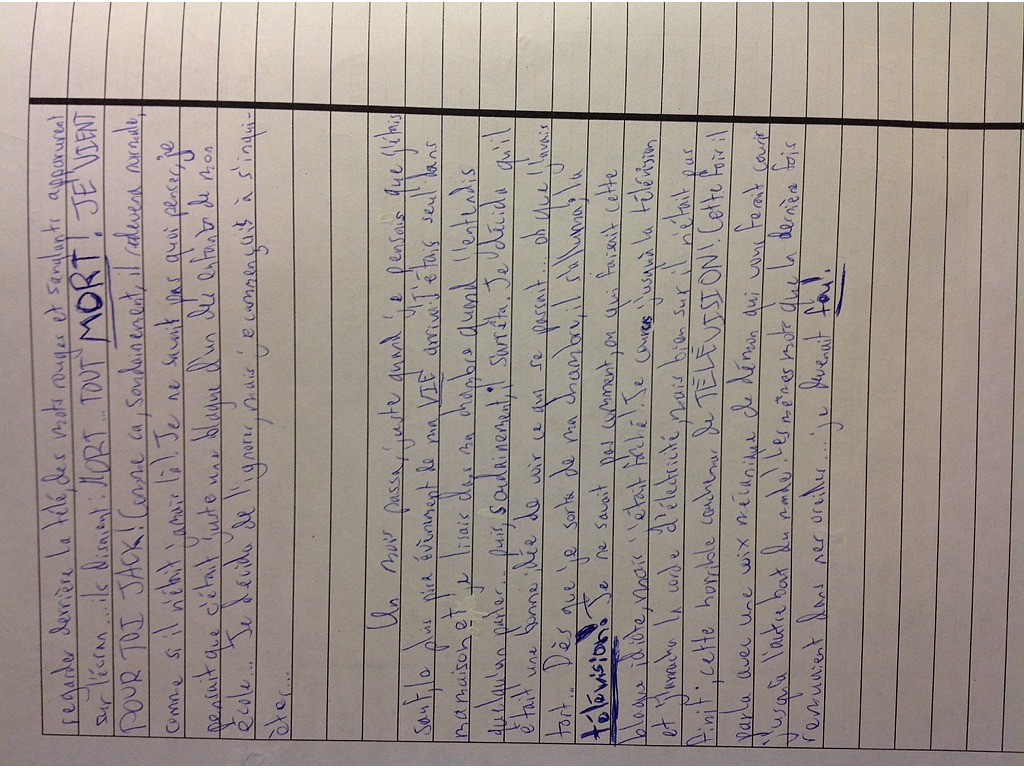 regarder derrière la télé, des mots rouges et sanglants apparurent
sur l'écran... ils disaient: MORT... TOUT MORT! JE VIENT
POUR TOI JACK! Comme ca, soudainement, il redevena normale,
comme si il n'était jamais là! Je ne savait pas quoi penser, je
pensait que c'était juste une blague d'un des enfants de mon
école... Je décida de l'ignorer, mais je commençait à s'inqui-
èter...
Un mois passa, juste quand je pensais que j'étais
sauf, le plus pire évènement de ma VIE arriva! J'étais seul dans
ma maison et je lisais dans ma chambre quand j'entendis
quelqu'un parler... puis, soudainement, il s'arrêta. Je décida qu'il
était une bonne idée de voir ce qui se passait... oh que j'avais
tort... Dès que je sorta de ma chambre, il s'alluma; la
télévision! Je ne savait pas comment, ou qui faisait cette
blague idiote, mais j'était fâché! Je courrers jusqu'à la télévision
et j'arracha la corde d'électricité, mais bien sur, il n'était pas
finit; cette horrible cauchemar de TÉLÉVISION! Cette fois il
parla avec une voix mécanique de démon qui vous ferait courir
jusqu'à l'autre bout du monde! Les mêmes mots que la dernière fois
remuaient dans mes oreilles... je devenait fou!